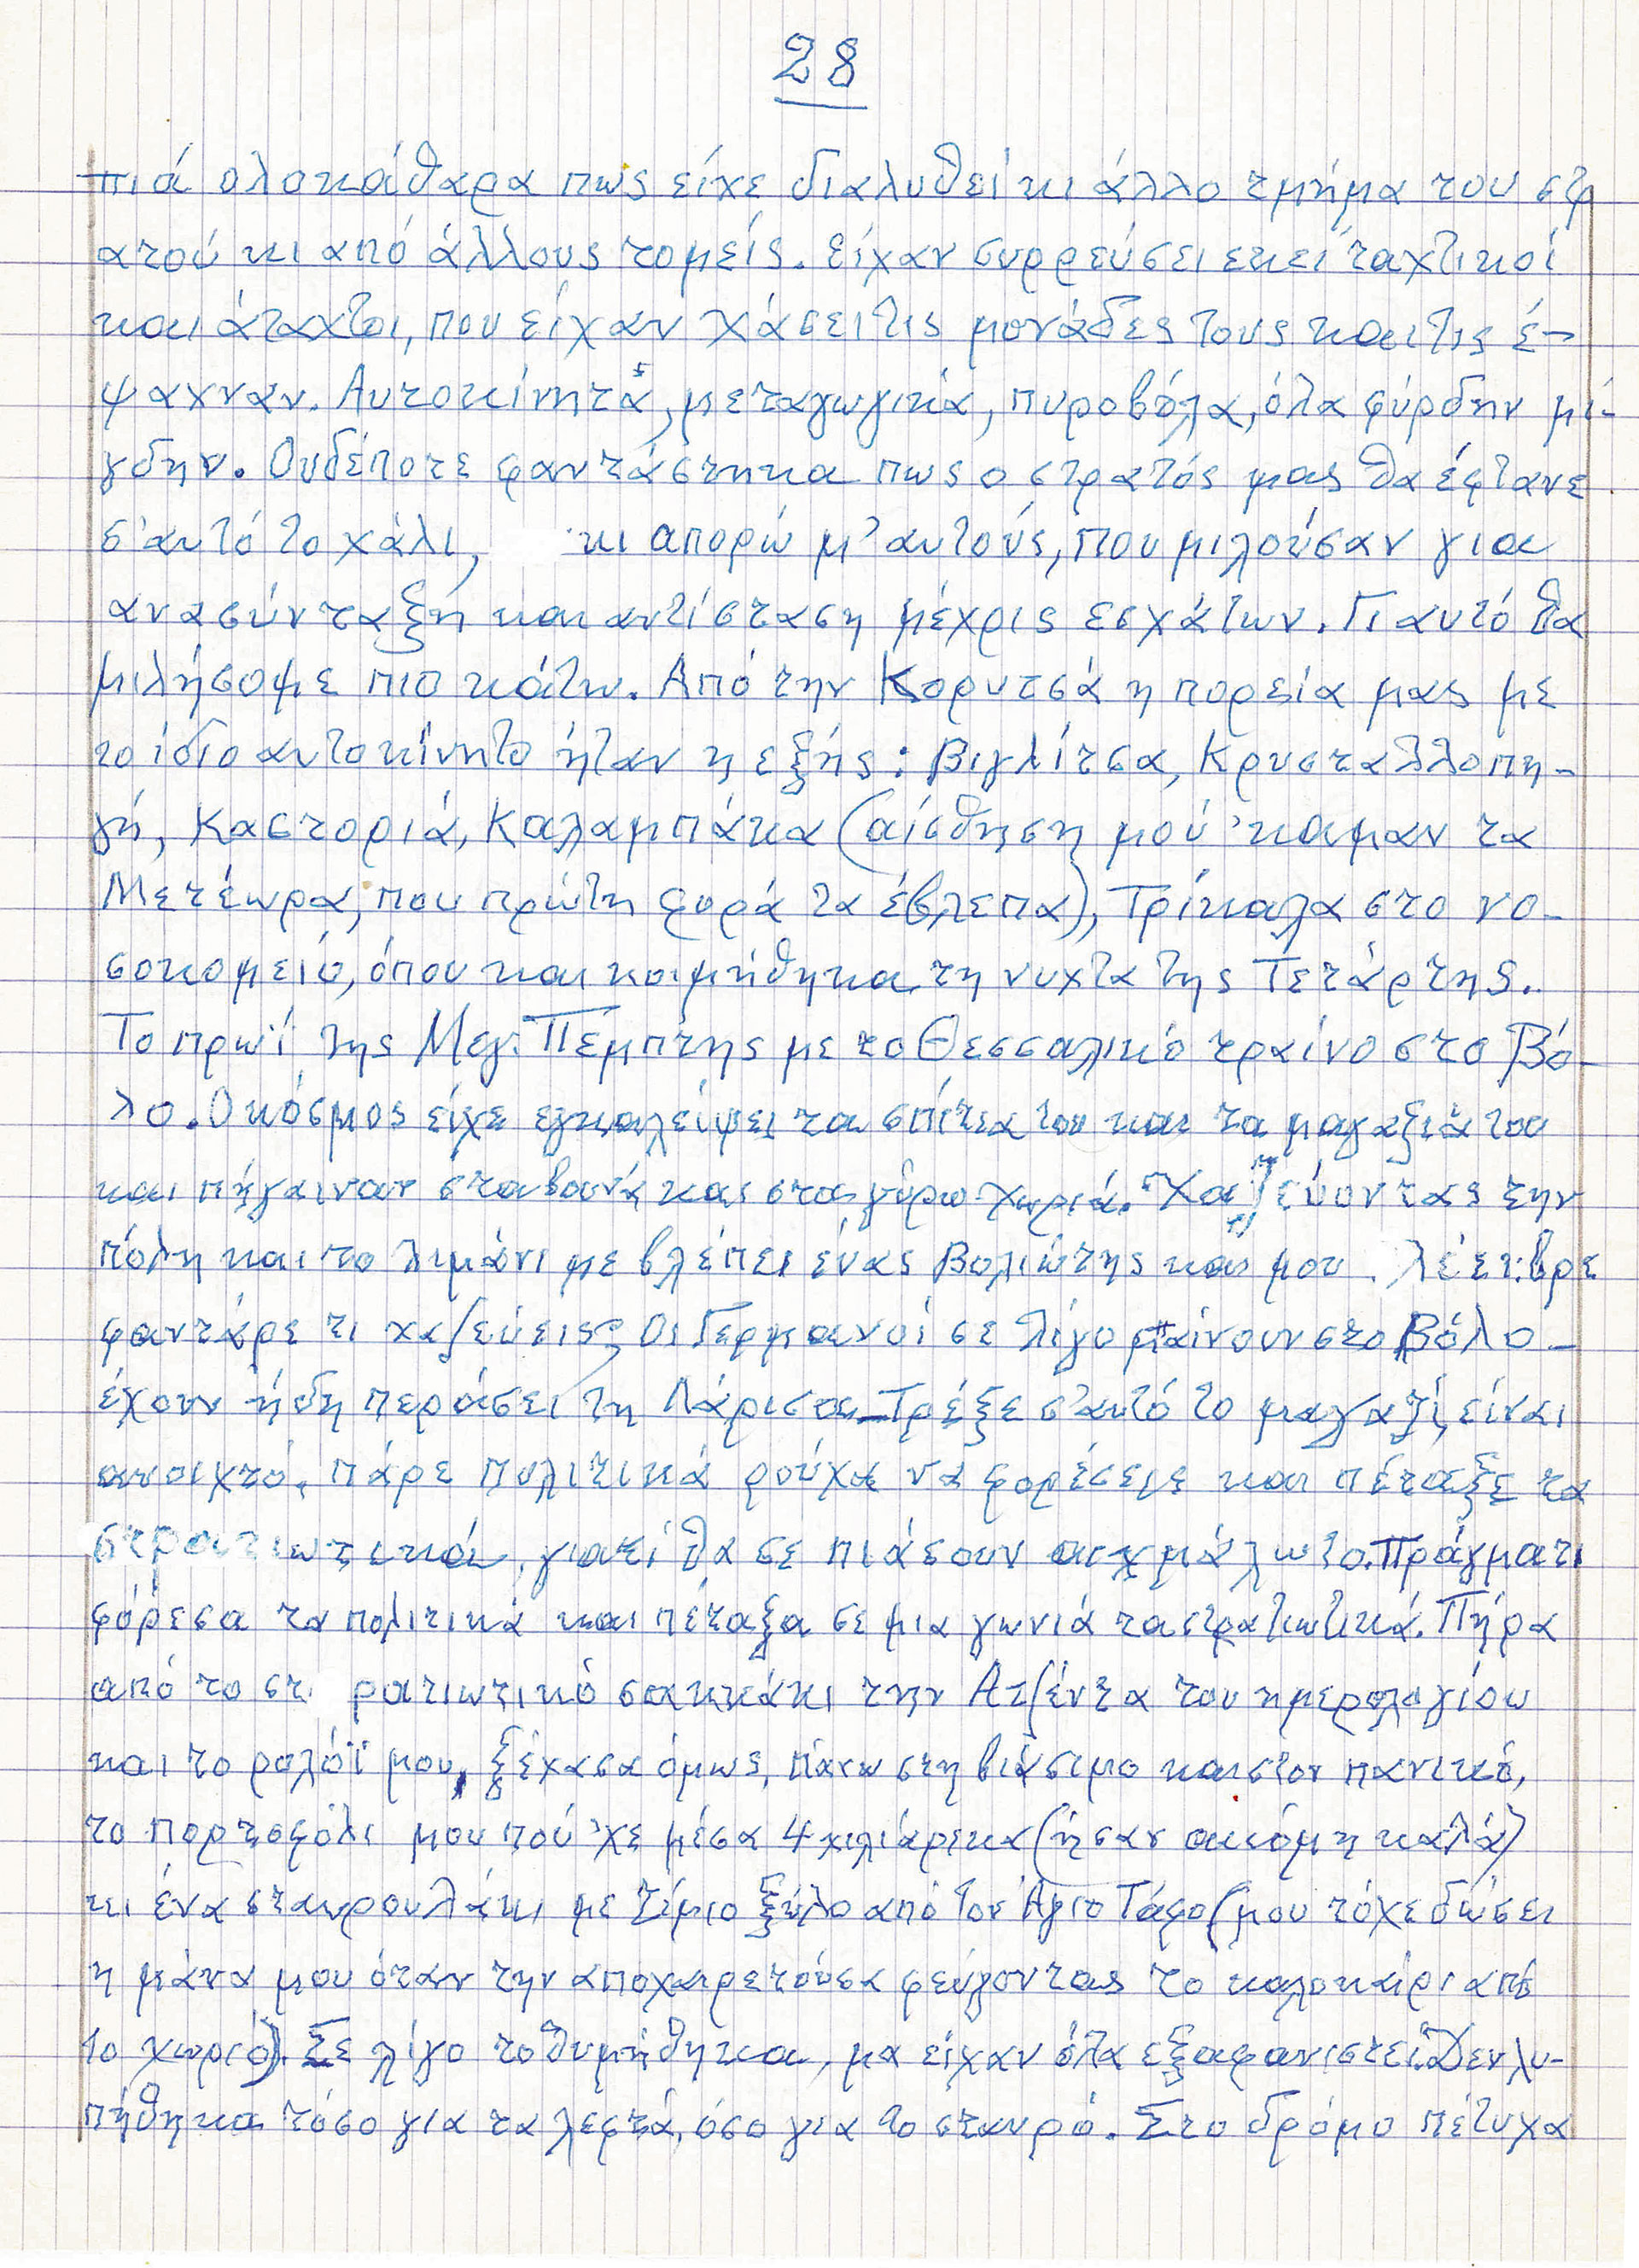 28
πιά ολοκάθαρα πως είχε διαλυθεί κι άλλο τμήμα του στρ
ατού κι από άλλους τομείς. Είχαν συρρεύσει εκεί ταχτικοί
και άταχτοι, που είχαν χάσει τις μονάδες τους και τις έ-
ψαχναν. Αυτοκίνητα, μεταγωγικά, πυροβόλα, όλα φύρδην μί-
γδην. Ουδέποτε φαντάστηκα πως ο στρατός μας θα έφτανε
σ' αυτό το χάλι, κι απορώ μ' αυτούς, που μιλούσαν για
ανασύνταξη και αντίσταση μέχρις εσχάτων. Γι αυτό θα
μιλήσομε πιο κάτω. Από την Κορυτσά η πορεία μας με
το ίδιο αυτοκίνητο ήταν η εξής: Βιγλίτσα, Κρυσταλλοπη-
γή, Καστοριά, Καλαμπάκα (αίσθηση μού 'καμαν τα
Μετέωρα, που πρώτη φορά τα έβλεπα), Τρίκαλα στο νο-
σοκομείο, όπου και κοιμήθηκα τη νυχτα της Τετάρτης.
Το πρωί της Μεγ. Πέμπτης με το Θεσσαλικό τραίνο στο Βό-
λο. Ο κόσμος είχε εγκαλείψει τα σπίτια του και τα μαγαζιά του
και πήγαιναν στα βουνά και στα γύρω χωριά. Χαζεύοντας την
πόλη και το λιμάνι με βλέπει ένας Βολιώτης και μου λέει: βρε
φαντάρε τι χαζεύεις; Οι Γερμανοί σε λίγο μπαίνουν στο Βόλο -
έχουν ήδη περάσει τη Λάρισα - Τρέξε σ' αυτό το μαγαζί, είναι
ανοιχτό, πάρε πολιτικά ρούχα να φορέσεις και πέταξε τα
στρατιωτικά, γιατί θα σε πιάσουν αιχμάλωτο. Πράγματι
φόρεσα τα πολιτικά και πέταξα σε μια γωνιά τα στρατιωτικά. Πήρα
από το στ ρατιωτικό σακκάκι την Ατζέντα του ημερολογίου
και το ρολόϊ μου, ξέχασα όμως, πάνω στη βιάσιμο και στον πανικό,
το πορτοφόλι μου πού 'χε μέσα 4 χιλιάρικα (ήσαν ακόμη καλά)
κι ένα σταυρουλάκι με τίμιο ξύλο από τον Άγιο Τάφο (μου τόχε δώσει
η μάνα μου όταν την αποχαιρετούσα φεύγοντας το καλοκαίρι από
το χωριό). Σε λίγο το θυμήθηκα, μα είχαν όλα εξαφανιστεί. Δεν λυ-
πήθηκα τόσο για τα λεφτά, όσο για το σταυρό. Στο δρόμο πέτυχα